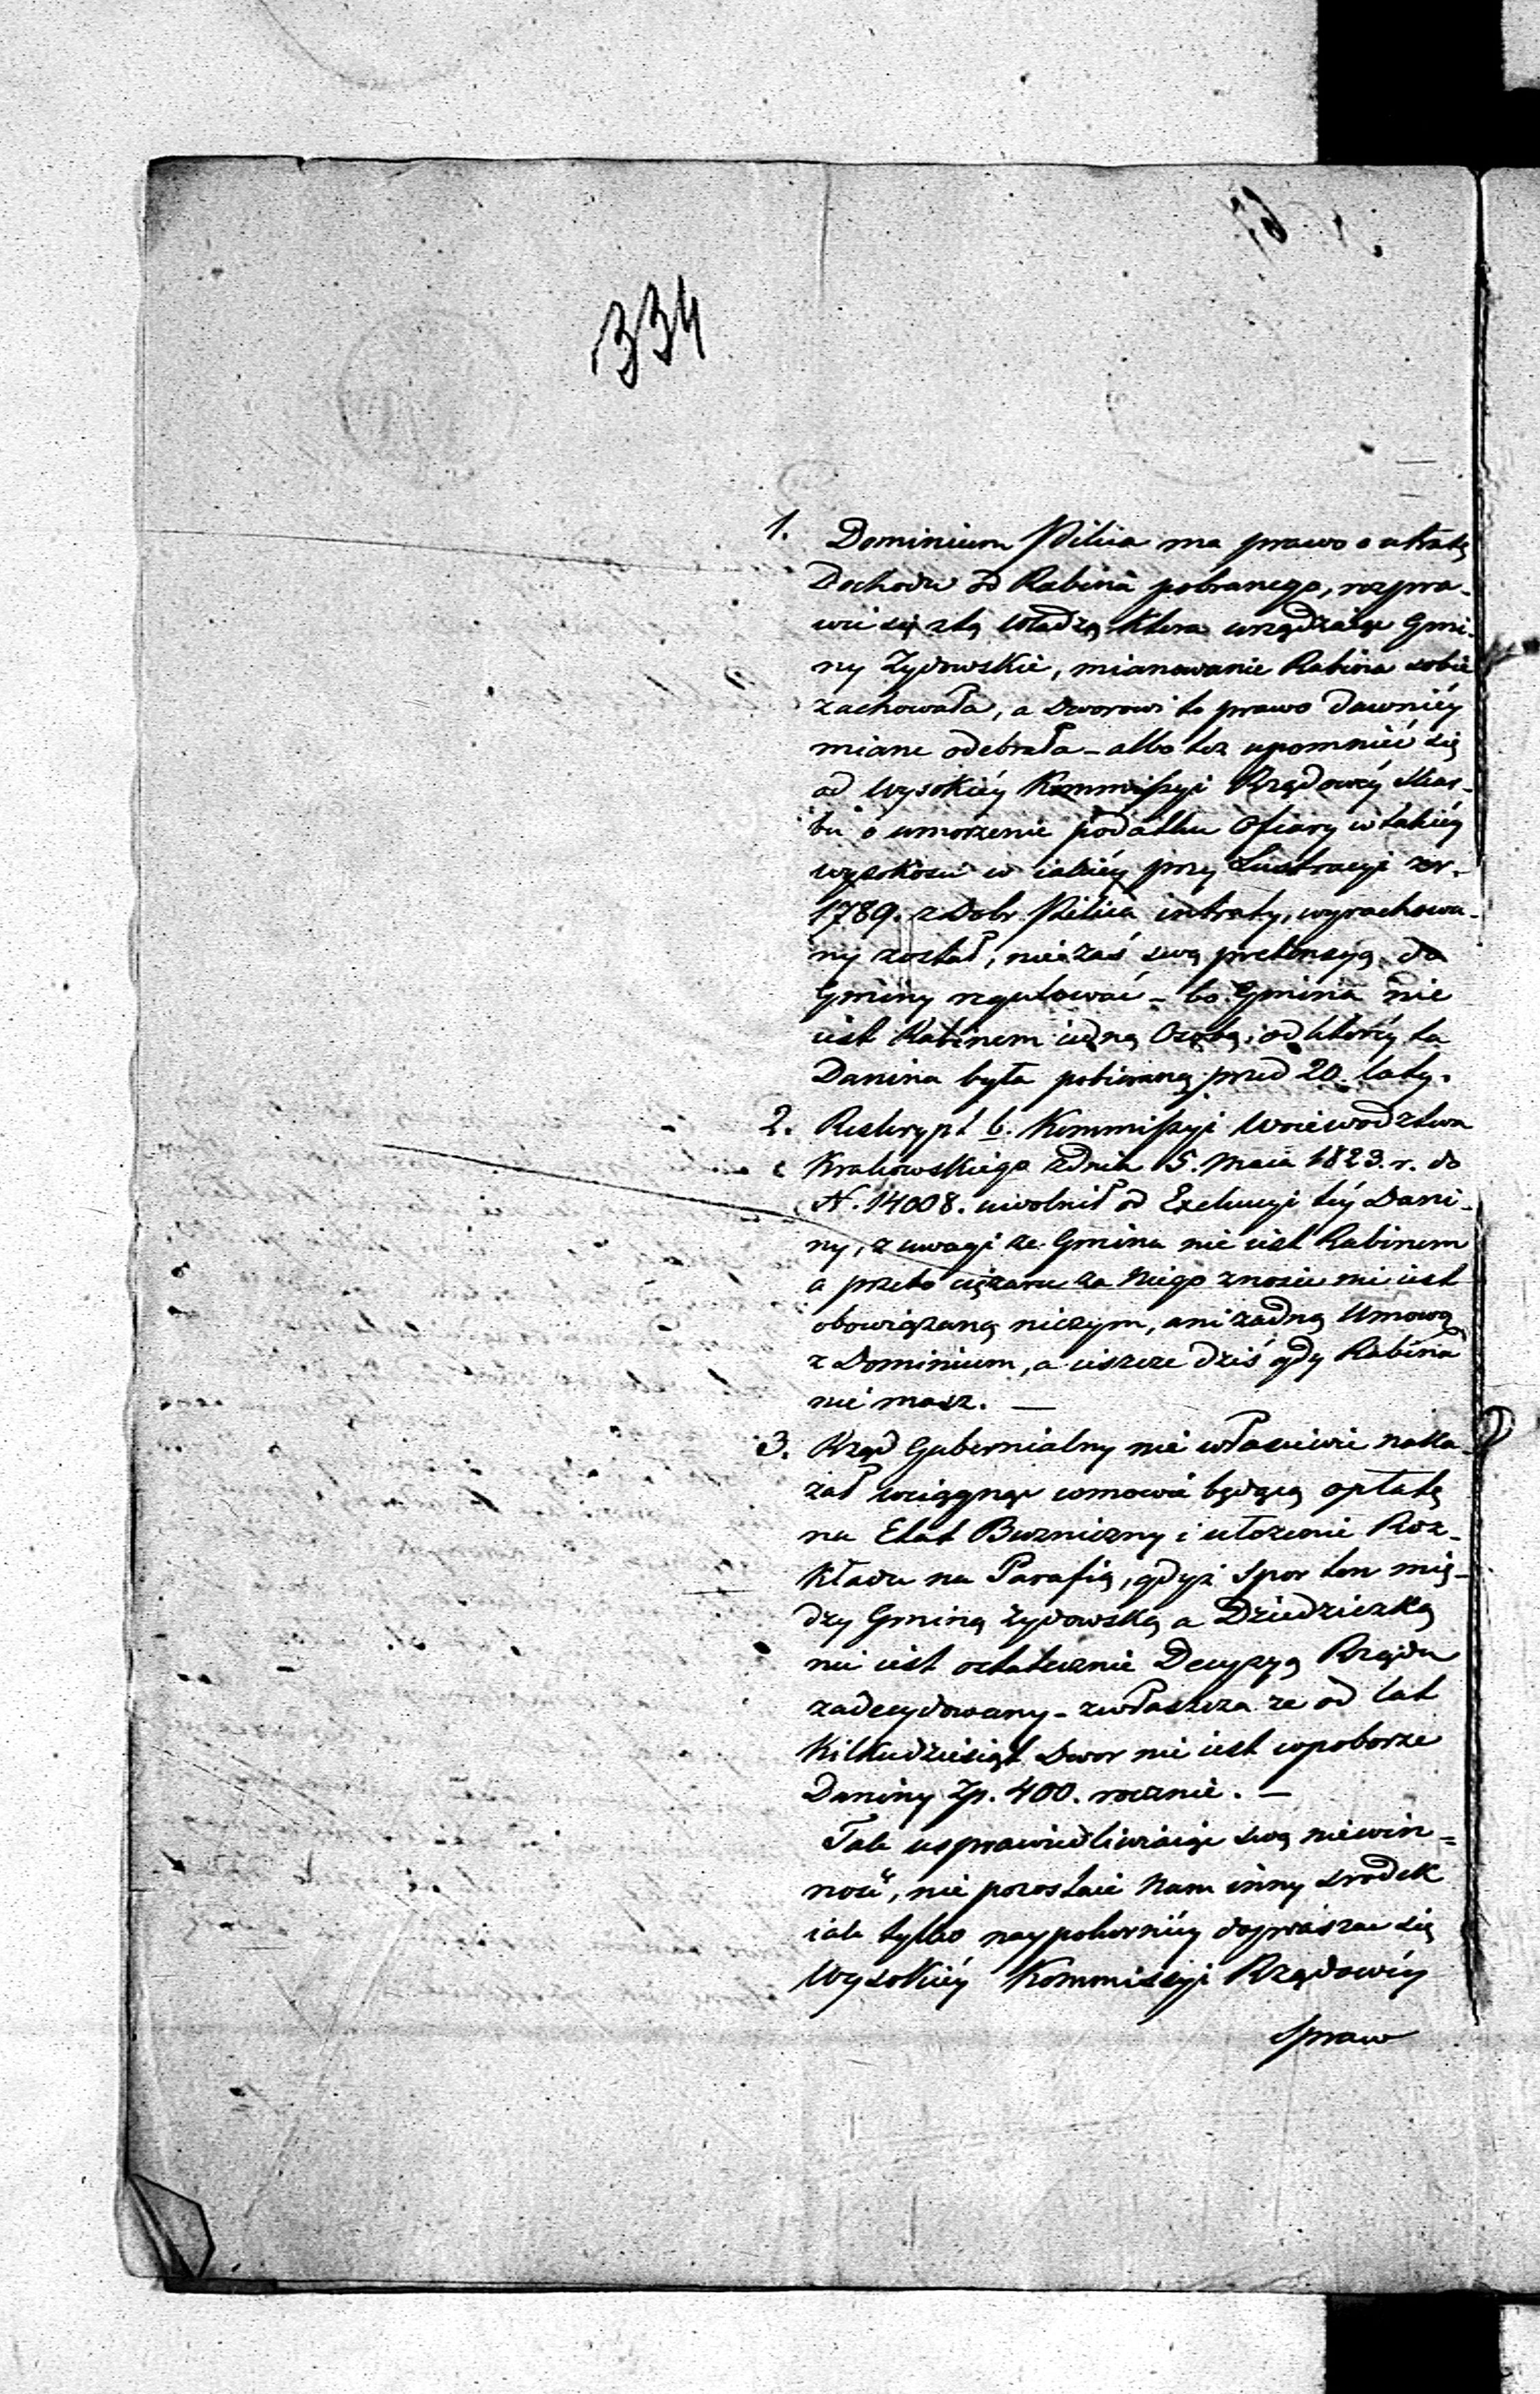 334
1. Dominium Pilica ma prawo o utratę
Dochodu od Rabina pobranego, rozpra-
wić się z tą Władzą która urządzaiąc Gmi-
ny Żydowskie, mianowanie Rabina sobie
zachowała, a Dworowi to prawo dawniéy
miane odebrała – albo też upomnieć się
od Wysokiéy Kommissyi Rządowéy Skar-
bu o umorzenie podatku Ofiary w takiéy
wysokości w iakiéy przy Lustracyi z r.
1789. z Dobr Pilica intraty, wyrachowa-
ny został, nie zaś swą pretensyą do
Gminy regulować – bo Gmina nie
iest Rabinem iedną Osobą, od któréy ta
Danina była pobieraną przed 20. laty.
2. Reskrypt b. Kommissyi Woiewodztwa
Krakowskiego z dnia 5. Maia 1823. r. do
N. 14008. uwolnił od Exekucyi téy Dani-
ny, z uwagi że Gmina nie iest Rabinem
a przeto ciężaru za Niego znosić nie iest
obowiązaną niczym, ani żadną Umową
z Dominium, a ieszcze dziś gdy Rabina
nie masz. —
3. Rząd Gubernialny nie właściwie naka-
zał wciągnąć w mowie będącą opłatę
na Etat Bużniczny i ułożenie Roz-
kładu na Parafią, gdyż Spor ten mię-
dzy Gminą Żydowską a Dziedziczką
nie iest ostatecznie Decyzyą Rządu
zadecydowany – zwłaszcza że od lat
Kilkudziesiąt Dwor nie iest w poborze
Daniny Zp. 400. rocznie. —
Tak usprawiedliwiaiąc swą niewin-
ność, nie pozostaie Nam inny srodek
iak tylko naypokorniéy dopraszać się
Wysokiéy Kommissyi Rządowéy
Spraw